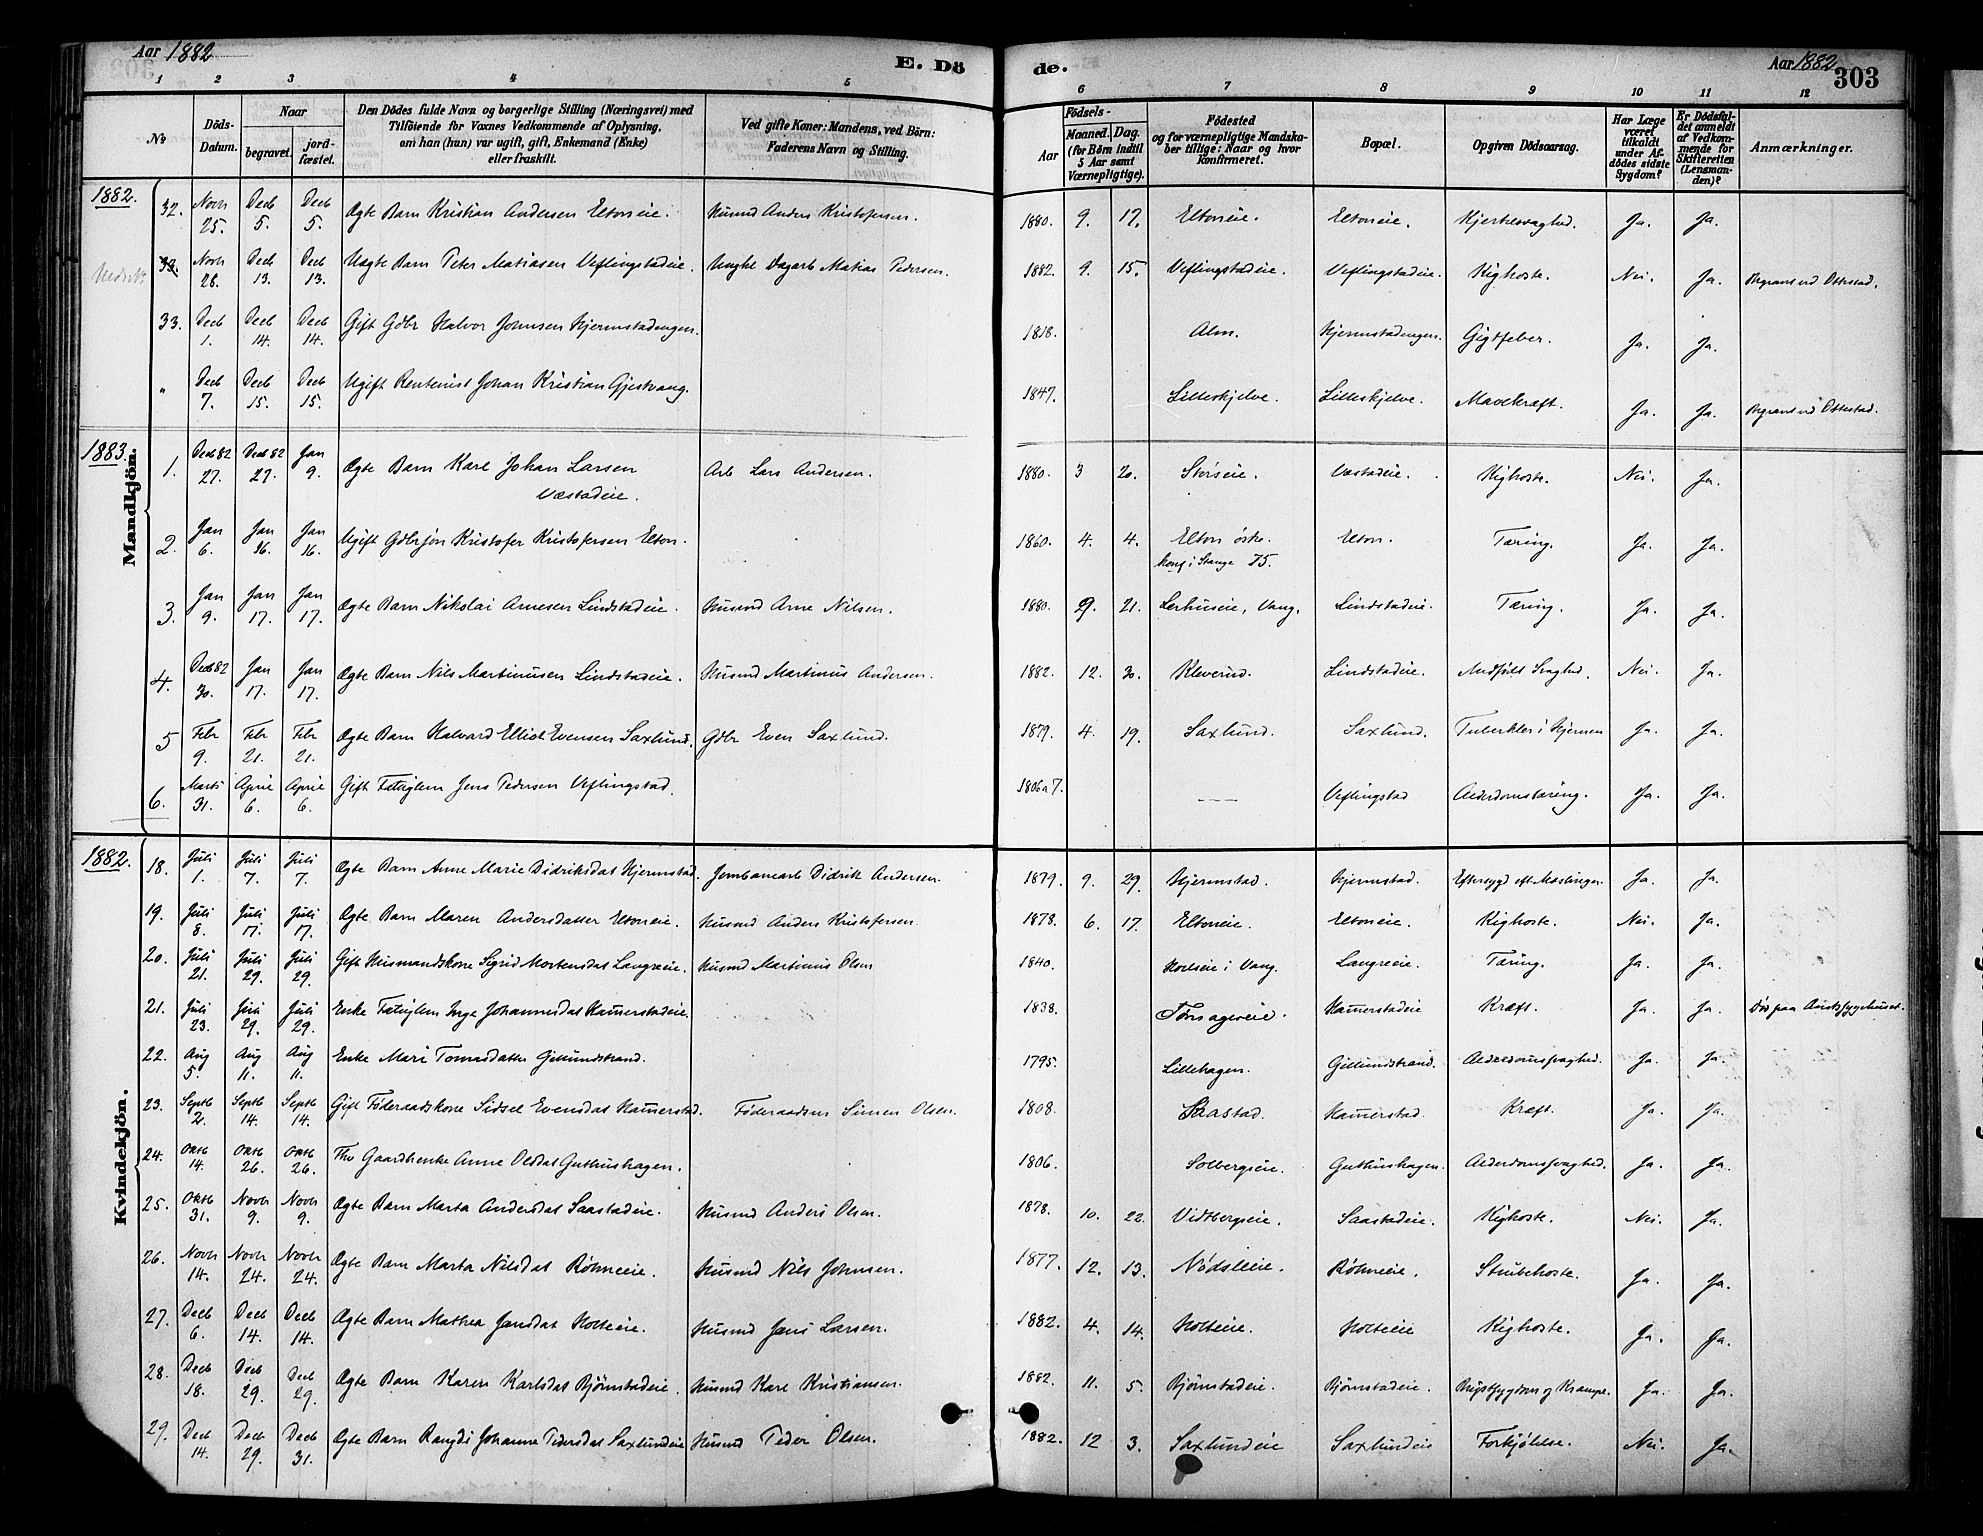 Aar 1882
E. Dö
de.
Aar 1882
303
1 2 3 4 5 6 7 8 9 10 11 12
No
Döds-Datum.
Naar
begravet.
jord-fæstet.
Den Dödes fulde Navn og borgerlige Stilling (Næringsvei) med
Tilföiende for Voxnes Vedkommende af Oplysning,
om han (hun) var ugift, gift, Enkemand (Enke)
eller fraskilt.
Ved gifte Koner: Mandens, ved Börn:
Faderens Navn og Stilling.
Födsels-
Aar
Maaned. Dag.
(for Börn indtil
5 Aar samt
Værnepligtige).
Födested
og for værnepligtige Mandska-
ber tillige: Naar og hvor
konfirmeret.
Bopæl.
Opgiven Dödsaarsag.
Har Læge
været
tilkaldt
under Af-
dödes sidste
Sygdom?
Er Dödsfal-
det anmeldt
af Vedkom-
mende for
Skifteretten
(Lensman-
den)?
Anmærkninger.
1882.
32. Novb 25. Decb 5. Decb 5. Ægte Barn Kristian Andersen Eltoneie. Husmd Anders Kristofersen. 1880. 9. 17. Eltoneie. Eltoneie. Hjertesvaghed. Ja. Ja.
33. Novb 28. Decb 13. Decb 13. Uægte Barn Peter Matiasen Veflingstadeie. Ungkl Dagarb Matias Pedersen. 1882. 9. 15. Veflingstadeie. Veflingstadeie. Kighoste. Nei. Ja. Begravet ved Ottestad.
33. Decb 1. Decb 14. Decb 14. Gift Gdbr Halvor Johnsen Hjermstadengen. 1818. Alm. Hjermstadengen. Gigtfeber. Ja. Ja.
" Decb 7. Decb 15. Decb 15. Ugift Rentenist Johan Kristian Gjestvang. 1847. Lilleskjelve. Lilleskjelve. Mavekræft. Ja. Ja. Begravet ved Ottestad.
1883.
Mandkjön.
1. Decb 82 27. Decb 82 27. Jan 9. Ægte Barn Karl Johan Larsen Væstadeie. Arb Lars Andersen. 1880. 3 20. Storseie. Væstadeie. Kighoste. Nei. Ja.
2. Jan 6. Jan 16. Jan 16. Ugift Gdbrsøn Kristofer Kristofersen Elton. 1860. 4. 4. Elton østre konf i Stange 75. Elton. Tæring. Ja. Ja.
3. Jan 9. Jan 17. Jan 17. Ægte Barn Nikolai Arnesen Lindstadeie. Husmd Arne Nilsen. 1880. 9. 21. Lerhuseie, Vang. Lindstadeie. Tæring. Ja. Ja.
4. Decb 82 30. Jan 17. Jan 17. Ægte Barn Nils Martinusen Lindstadeie. Husmd Martinus Andersen. 1882. 12. 30. Kleverud. Lindstadeie. Medfødt Svaghed. Nei. Ja.
5 Febr 9. Febr 21. Febr 21. Ægte Barn Halvard Elliot Evensen Saxlund. Gdbr Even Saxlund. 1879. 4. 19. Saxlund. Saxlund. Tuberkler i Hjernen Ja. Ja.
6. Marts 31. April 6. April 6. Gift Fatiglem Jens Pedersen Veflingstad. 1806 a 7. — Veflingstad Alderdomstæring. Ja. Ja.
1882.
Kvindekjön.
18. Juli 1. Juli 7. Juli 7. Ægte Barn Anne Marie Didriksdat Hjermstad. Jernbanearb Didrik Andersen. 1879. 9. 29. Hjermstad. Hjermstad. Eftersygd eft Mæslinger. Ja. Ja.
19. Juli 8. Juli 17. Juli 17. Ægte Barn Maren Andersdatter Eltoneie. Husmd Anders Kristofersen. 1878. 6. 17. Eltoneie. Eltoneie. Kighoste. Nei. Ja.
20. Juli 21. Juli 29. Juli 29. Gift Husmandskone Sigrid Mortensdat Langreeie. Husmd Martinus Olsen 1840. Holseie i Vang. Langreeie. Tæring. Ja. Ja.
21. Juli 23. Juli 29. Juli 29. Enke Fatiglem Inge Johannesdat Hamerstadeie. 1838. Hamerstadeie Kræft. Ja. Ja. Død paa Amtssygehuset.
22. Aug 5. Aug 11. Aug 11. Enke Mari Tomasdatter Gillundstrand. 1795. Lillehagen. Gillundstrand. Alderdomssvaghed. Ja. Ja.
23. Septb 2. Septb 14. Septb 14. Gift Føderaadskone Sidsel Evensdat Hamerstad. Føderaadsm Simen Olsen. 1808. Saastad. Hamerstad. Kræft. Ja. Ja.
24. Oktb 14. Oktb 26. Oktb 26. Fhv Gaardbenke Anne Olsdat Guthushagen. 1806. Solbergeie. Guthushagen. Alderdomssvaghed. Ja. Ja.
25. Oktb 31. Novb 9. Novb 9. Ægte Barn Marta Andersdat Saastadeie. Husmd Anders Olsen. 1878. 10. 22. Vidtbergseie. Saastadeie. Kighoste. Nei. Ja.
26. Novb 14. Novb 24. Novb 24. Ægte Barn Marta Nilsdat Røhneeie. Husmd Nils Johnsen. 1877. 12. 13. Nødsleeie. Røhneeie. Strubehoste. Ja. Ja.
27. Decb 6. Decb 14. Decb 14. Ægte Barn Mathea Jensdat Holteeie. Husmd Jens Larsen. 1882. 4. 14. Holteeie. Holteeie Kighoste. Ja. Ja.
28. Decb 18. Decb 29. Decb 29. Ægte Barn Karen Karlsdat Bjørnstadeie. Husmd Karl Kristiansen. 1882. 11. 5. Bjørnstadeie. Bjørnstadeie. Brystsygdom og Krampe. Ja. Ja.
29. Decb 14. Decb 29. Decb 31. Ægte Barn Rangdi Johanne Pedersdat Saxlundeie Husmd Peder Olsen. 1882. 12 3. Saxlundeie Saxlundeie Forkjølelse. Nei. Ja.